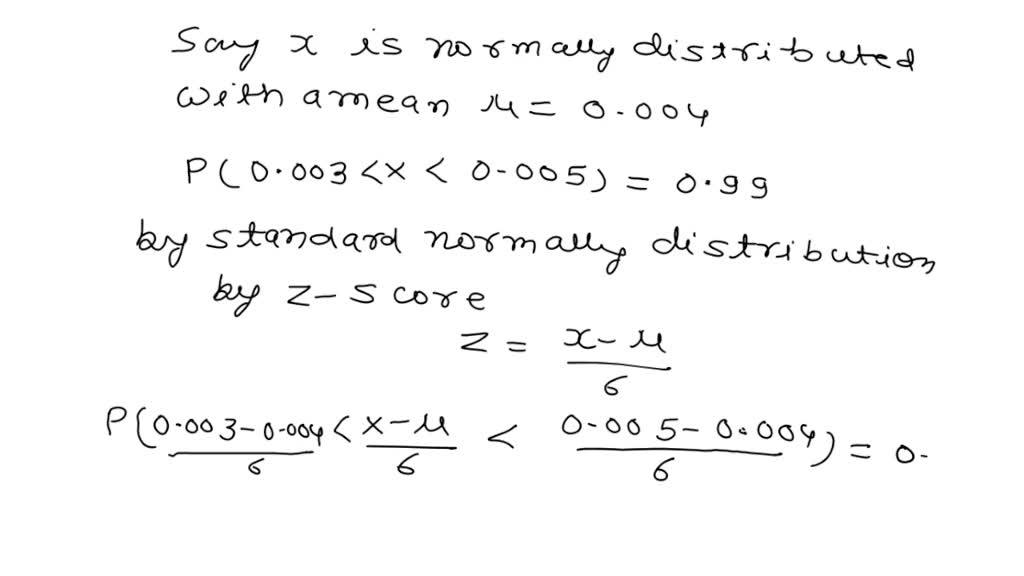 Say x is normally distributed
with a mean μ = 0.004
P(0.003 < x < 0.005) = 0.99
by standard normally distribution
by z-score
z = (x-μ)/6
P((0.003-0.004)/6 < (x-μ)/6 < (0.005-0.004)/6) = 0.